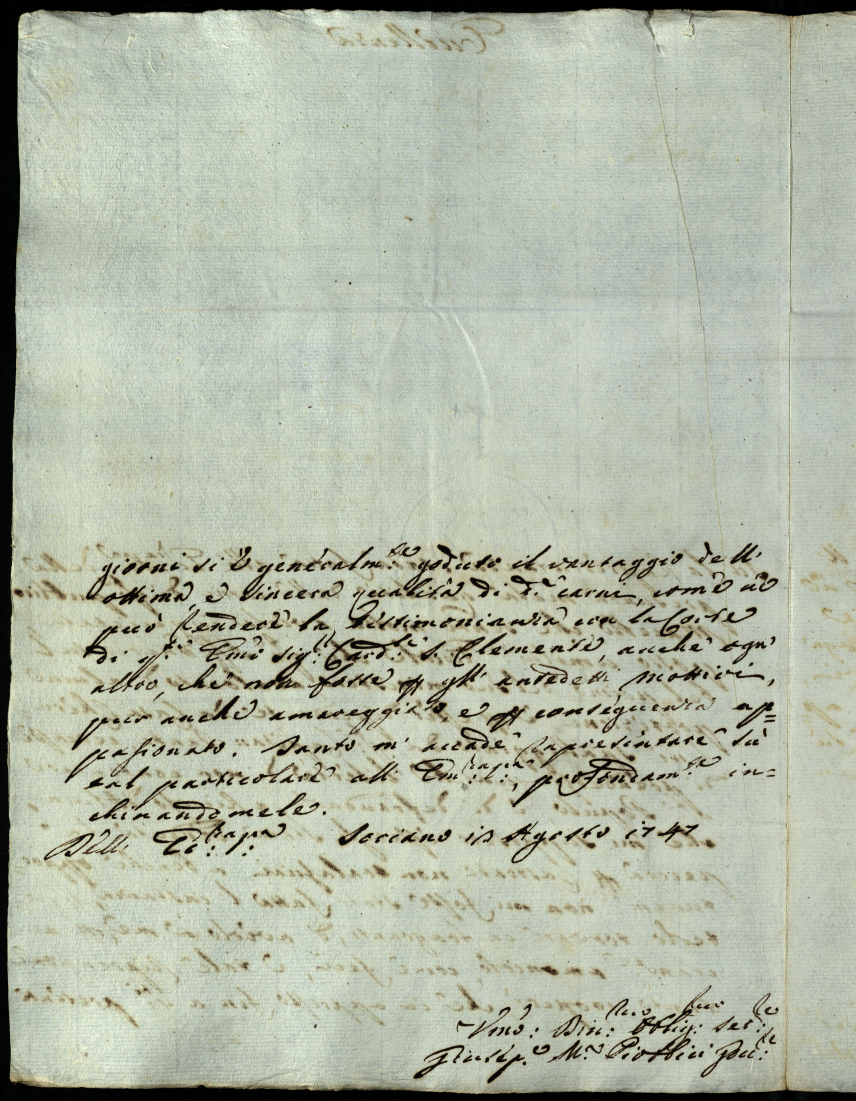 giorni si è generalm.te goduto il vantaggio dell'
ottima, e sincera qualità di d.e carni, com'è ne
può rendere la testimonianza con la Corte
di q.to Emo sig.r Card.le S. Clemente, anche ogn'
altro, che non fosse p gli antedetti mottivi,
pur anche amareggiato, e p conseguenza ap=
pasionato. Tanto m' accade rapresentare sù
tal particolare all' Em.za V.ra, profondam.te in=
chinandomele.
Dell' Soriano 13 Agosto 1747
Vmo: Obblig: ser:
Giusep.e M.a